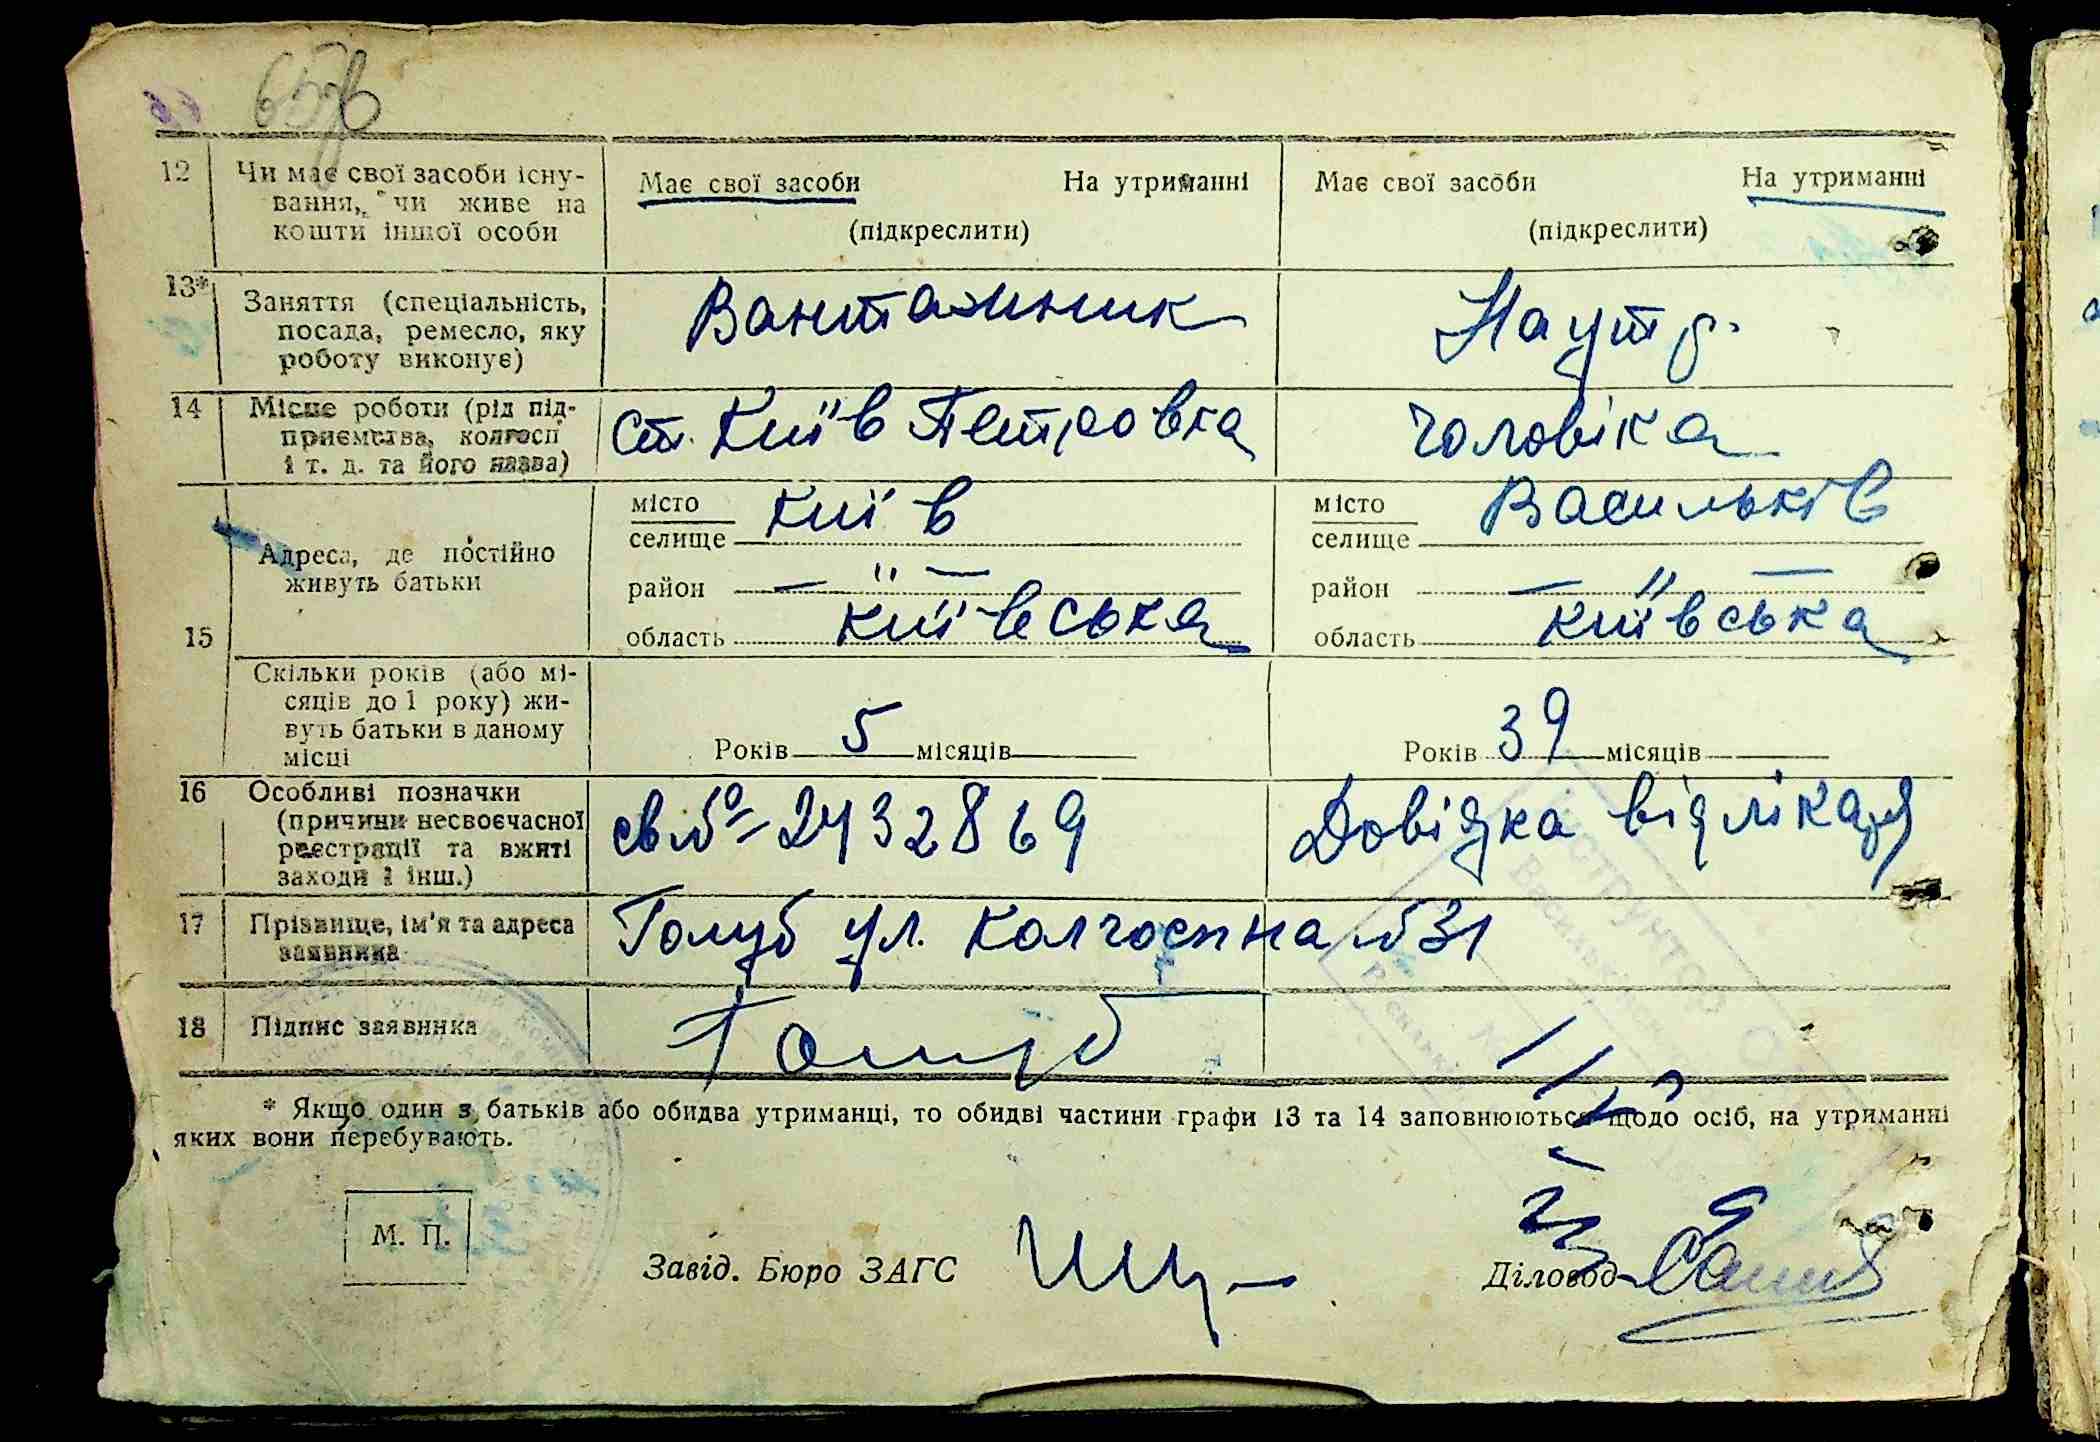 657б
12 Чи має свої засоби існу- Має свої засоби На утриманні Має свої засоби На утриманні
вання, чи живе на
кошти іншої особи (підкреслити) (підкреслити)
13* Заняття (спеціальність, Вантажник На утр.
посада, ремесло, яку
роботу виконує)
14 Місце роботи (рід під- ст. Київ Петровка чоловіка
приємства, колгосп
і т. д. та його назва)
місто Київ місто Васильків
селище селище
Адреса, де постійно
живуть батьки
район — " — район — " —
15 область київська область київська
Скільки років (або мі-
сяців до 1 року) жи-
вуть батьки в даному Років 5 місяців Років 39 місяців
місці
16 Особливі позначки св № 2432869 Довідка від лікаря
(причини несвоєчасної
реєстрації та вжиті
заходи і інш.)
17 Прізвище, ім'я та адреса Голуб ул. Колгоспна № 31
заявника
18 Підпис заявника Голуб
* Якщо один з батьків або обидва утриманці, то обидві частини графи 13 та 14 заповнюються щодо осіб, на утриманні
яких вони перебувають.
М. П.
Завід. Бюро ЗАГС Діловод